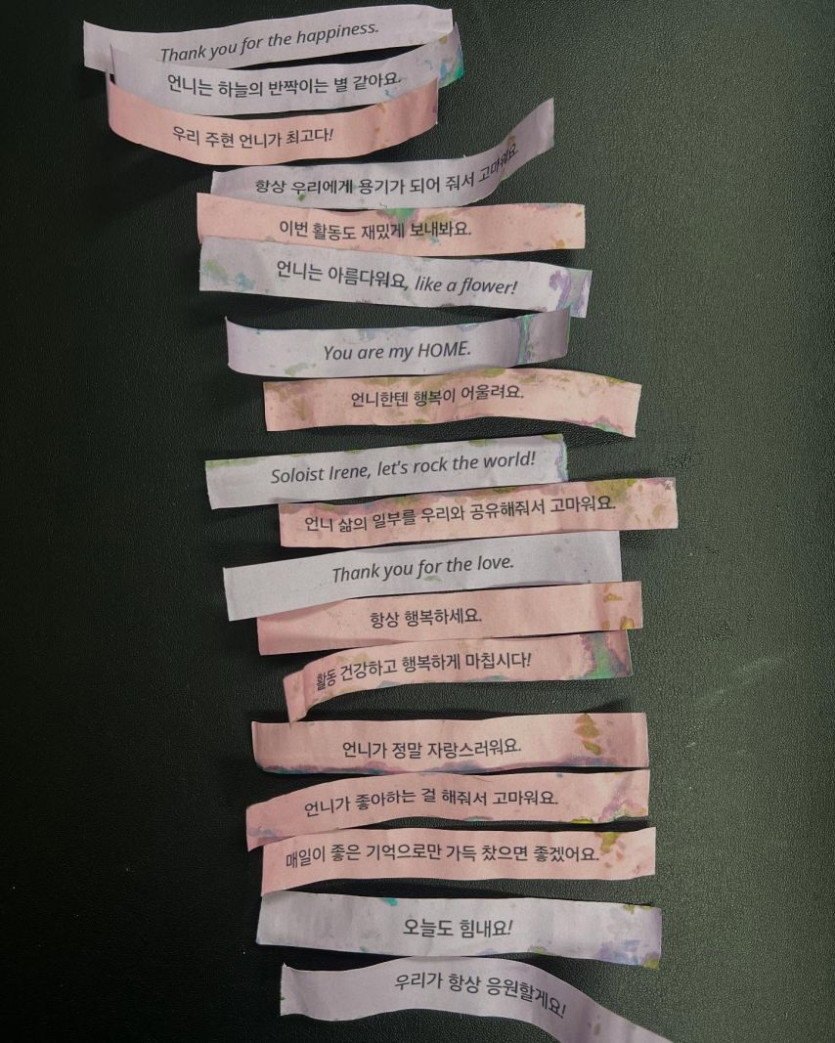 Thank you for the happiness.
언니는 하늘의 반짝이는 별 같아요.
우리 주현 언니가 최고다!
항상 우리에게 용기가 되어 줘서 고마워요.
이번 활동도 재밌게 보내봐요.
언니는 아름다워요, like a flower!
You are my HOME.
언니한텐 행복이 어울려요.
Soloist Irene, let's rock the world!
언니 삶의 일부를 우리와 공유해줘서 고마워요.
Thank you for the love.
항상 행복하세요.
활동 건강하고 행복하게 마칩시다!
언니가 정말 자랑스러워요.
언니가 좋아하는 걸 해줘서 고마워요.
매일이 좋은 기억으로만 가득 찼으면 좋겠어요.
오늘도 힘내요!
우리가 항상 응원할게요!